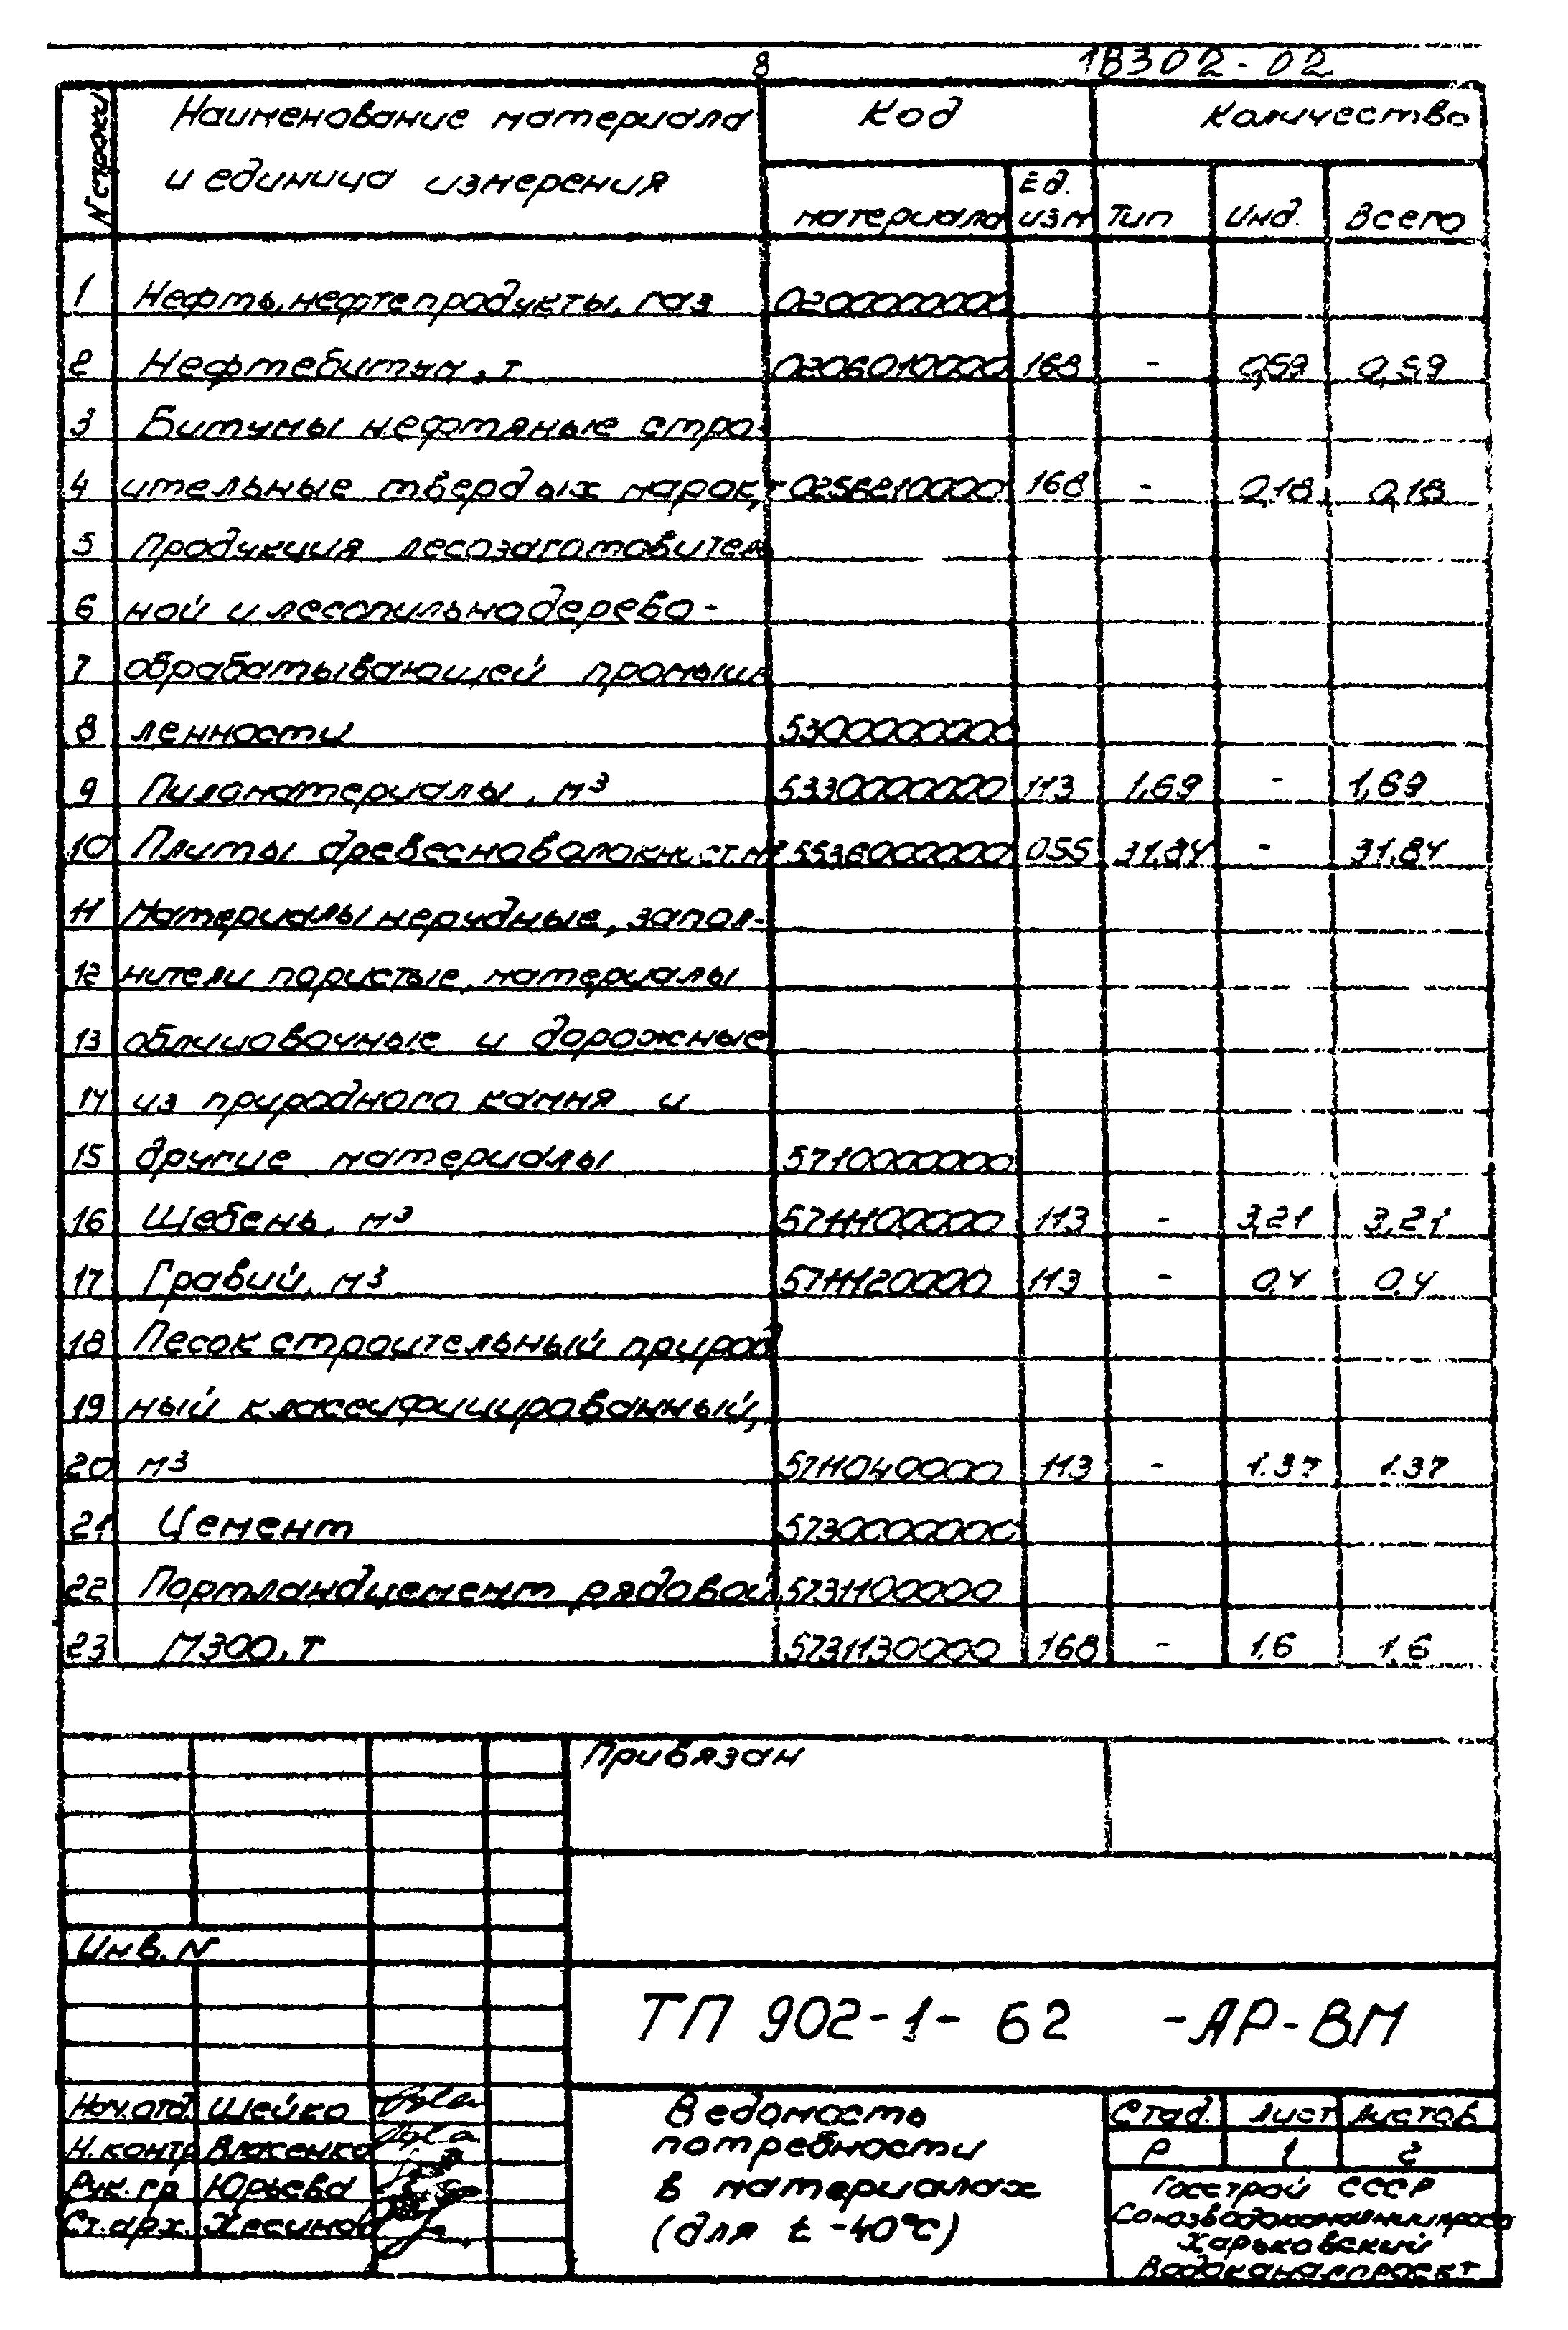 8 18302-02
N строки Наименование материала и единица измерения Код Количество
материала Ед. изм Тип Инд. Всего
1 Нефть, нефтепродукты, газ 0200000000
2 Нефтебитум, т 0206010000 168 - 0,59 0,59
3 Битумы нефтяные стро-
4 ительные твердых марок, т 0256210000 168 - 0,18 0,18
5 Продукция лесозаготовитель
6 ной и лесопильнодерево-
7 обрабатывающей промыш
8 ленности 5300000000
9 Пиломатериалы, м3 5330000000 113 1,69 - 1,69
10 Плиты древесноволокнист. м2 5536000000 055 31,84 - 31,84
11 Материалы нерудные, запол-
12 нители пористые, материалы
13 облицовочные и дорожные
14 из природного камня и
15 другие материалы 5710000000
16 Щебень, м3 5711100000 113 - 3,21 3,21
17 Гравий, м3 5711120000 113 - 0,4 0,4
18 Песок строительный природ
19 ный классифицированный,
20 м3 5711040000 113 - 1.37 1.37
21 Цемент 5730000000
22 Портландцемент рядовой 5731100000
23 М300, т 5731130000 168 - 1,6 1,6
Привязан
Инв. N
ТП 902-1-62 -АР-ВМ
Нач.отд. Шейко
Н.контр Власенко
Рук. гр Юрьева
Ст.арх.
Ведомость
потребности
в материалах
(для t -40°С)
Стад. Лист Листов
Р 1 2
Госстрой СССР
Союзводоканалниипроект
Харьковский
Водоканалпроект